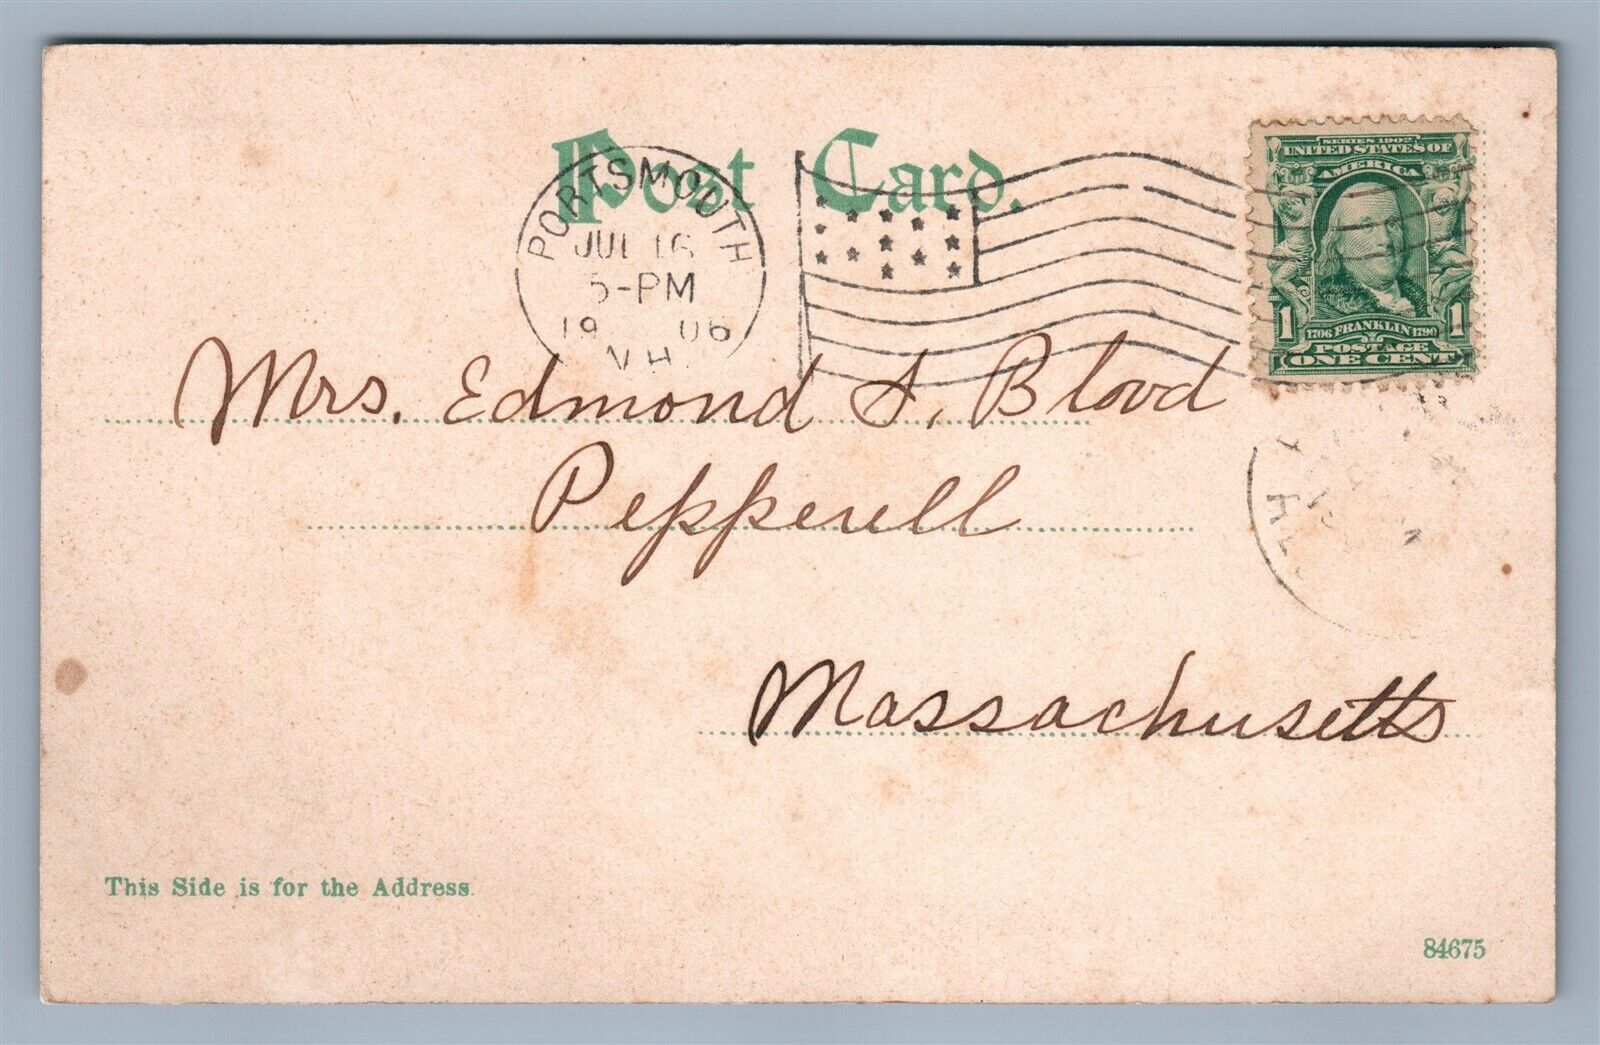 Post Card.
PORTSMOUTH
JUL 16
5-PM
1906
N.H.
SERIES 1902
UNITED STATES OF
AMERICA
1706 FRANKLIN 1790
1 1
POSTAGE
ONE CENT
Mrs. Edmond S. Blood
Pepperell
Massachusetts
This Side is for the Address.
84675